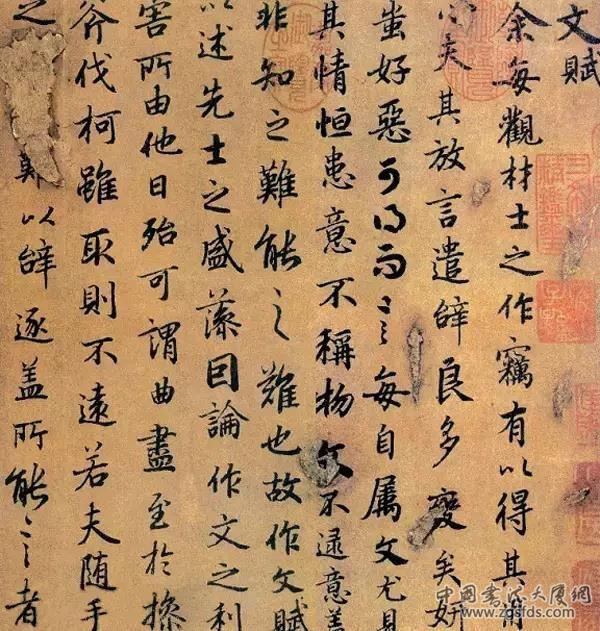 文賦
余每觀材士之作竊有以得其用
心夫其放言遣辭良多變矣妍
蚩好惡可得而言每自屬文尤見
其情恒患意不稱物文不逮意蓋
非知之難能之難也故作文賦
以述先士之盛藻因論作文之利
害所由他日殆可謂曲盡至於操
斧伐柯雖取則不遠若夫随手
之難以辭逐盖所能言者
中國書法大厦網
www.zgsfds.com